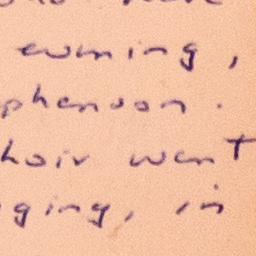 evening,
phenson.
hoir went
ging, in